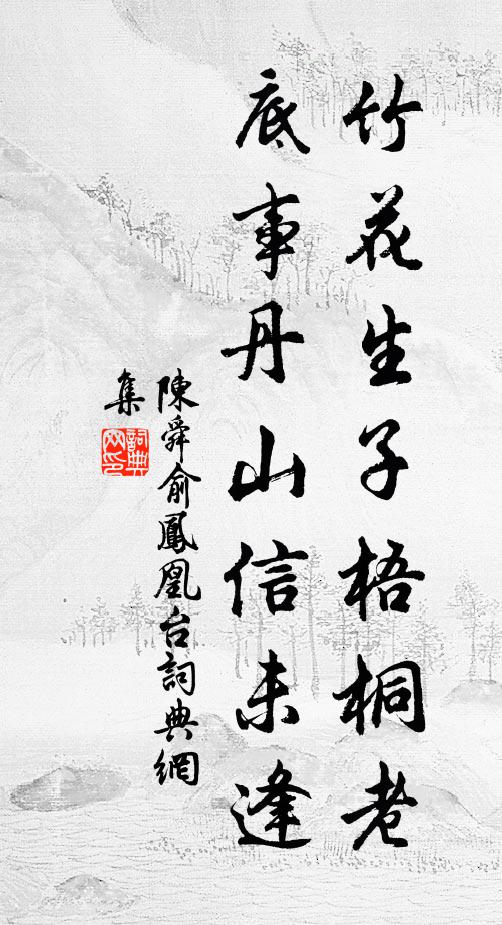 竹花生子梧桐老
底事丹山信未逢
陳舜俞鳳凰台詞典網
集
詞典網印